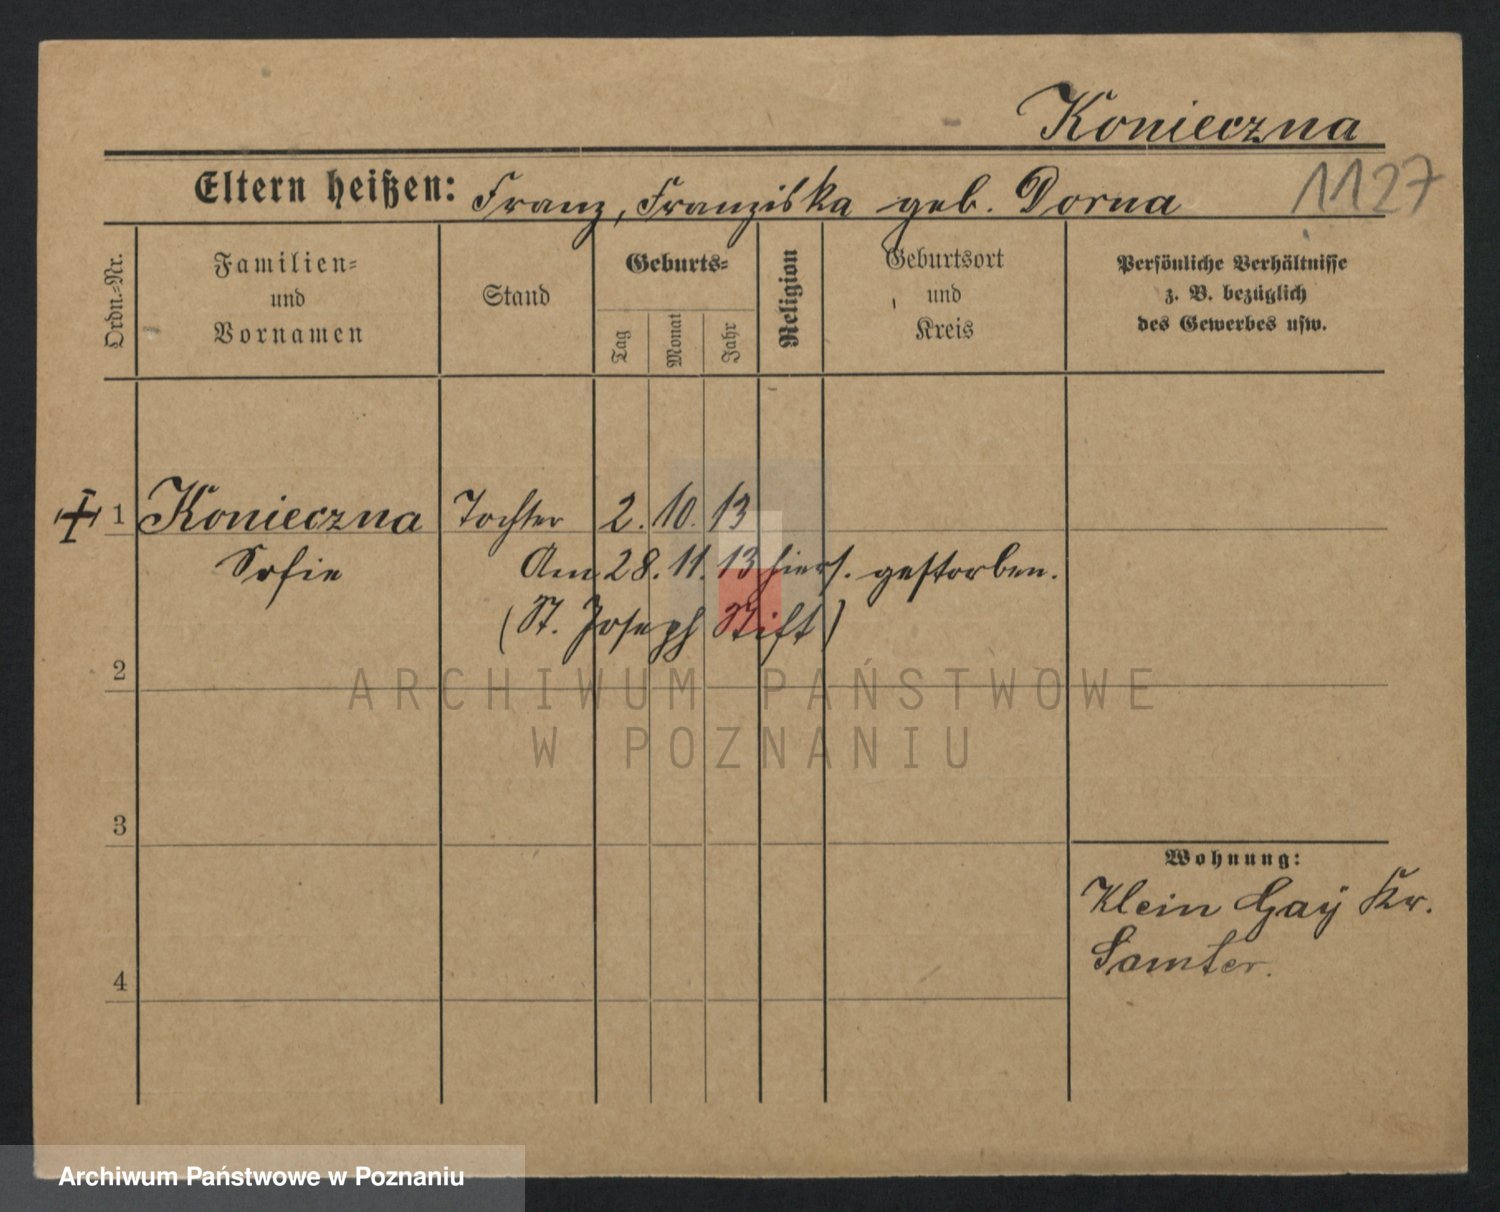 Konieczna
Eltern heißen: Franz, Franziska geb. Dorna
1127
Ordn.-Nr.
Familien-
und
Vornamen
Stand
Geburts-
Tag
Monat
Jahr
Religion
Geburtsort
und
Kreis
Persönliche Verhältnisse
z. B. bezüglich
des Gewerbes usw.
1 Konieczna Tochter 2. 10. 13
Sofie Am 28. 11. 13 hiers. gestorben.
(St. Joseph Stift)
2
ARCHIWUM PAŃSTWOWE
W POZNANIU
3
Wohnung:
Klein Gaÿ Kr.
Samter.
4
Archiwum Państwowe w Poznaniu